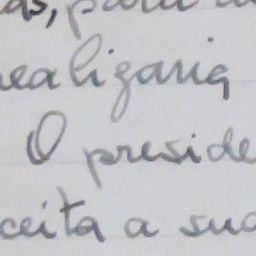 as, para a
realizaria
O preside
ceita a sua